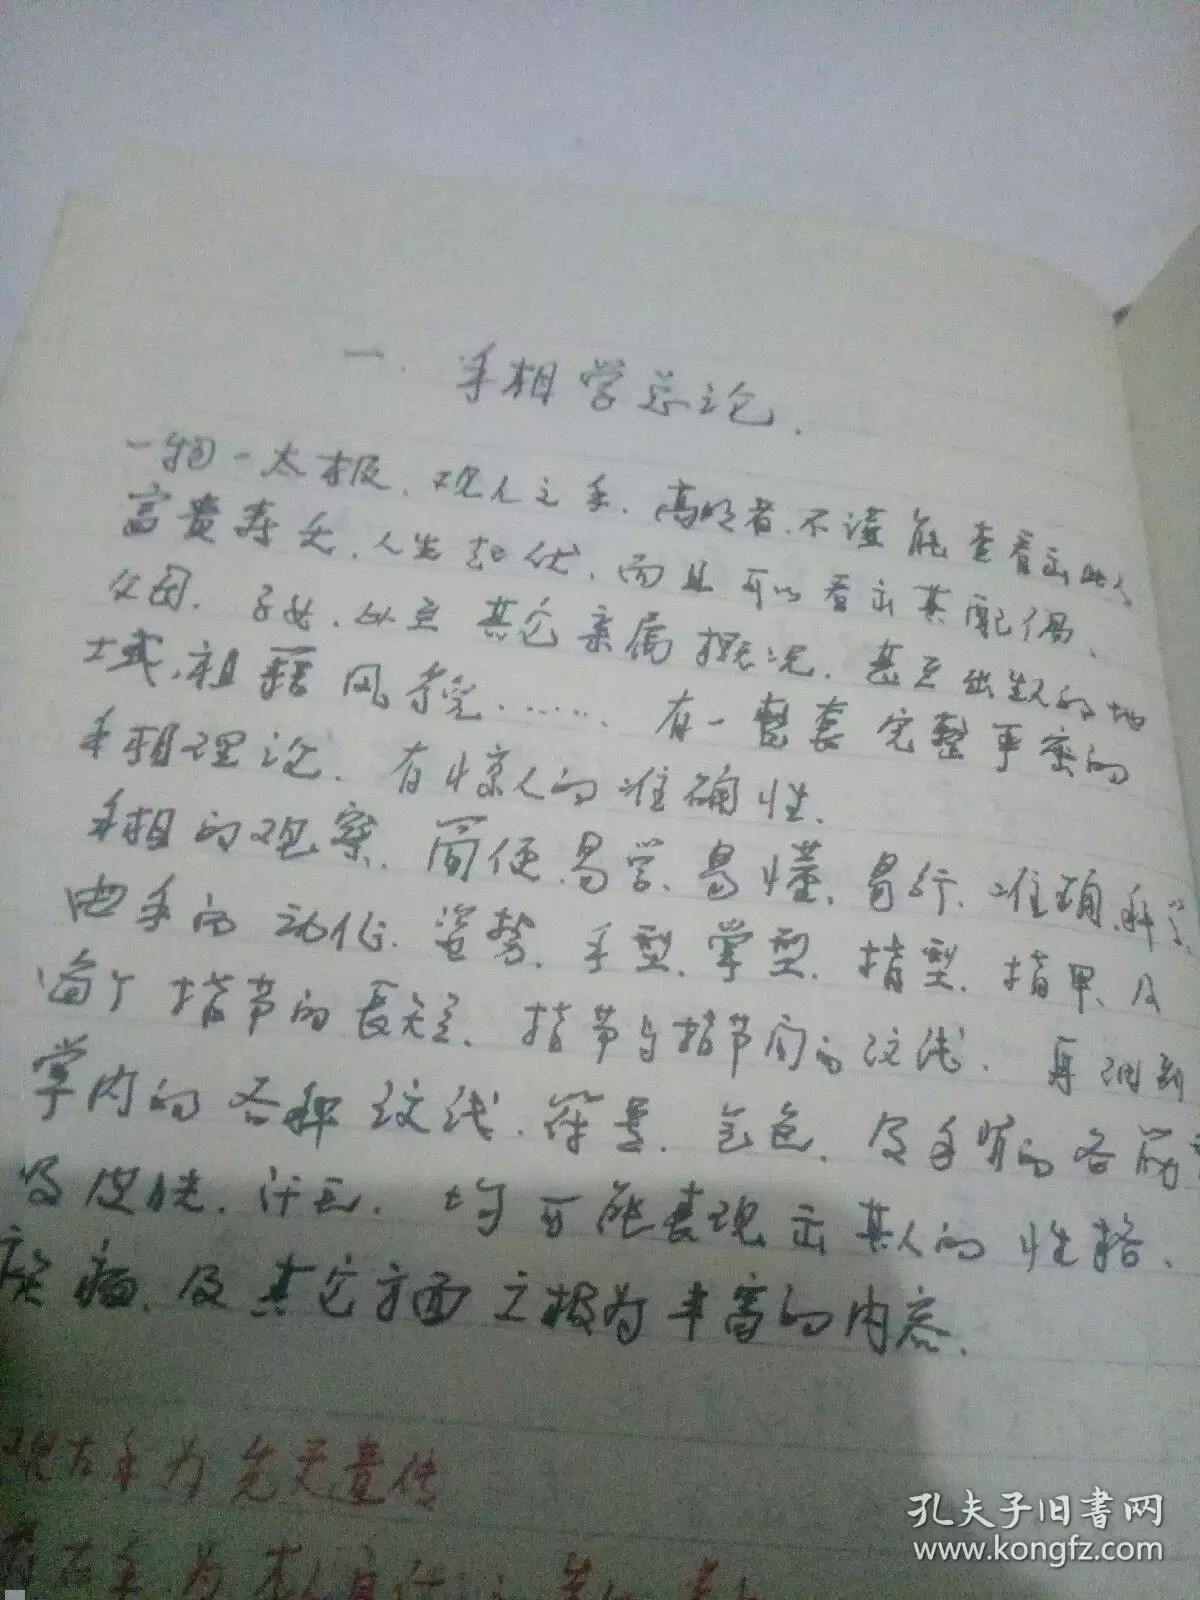 一. 手相学总论.
一物一太极. 观人之手. 高明者. 不谨能查看出此人
富贵寿夭. 人生起伏. 而且可以看出其配偶、
父母. 子女. 以至其它亲属概况. 甚至出生的地
域. 祖籍风貌. …… 有一整套完整严密的
手相理论. 有惊人的准确性.
手相的观察. 简便. 易学. 易懂. 易行. 准确. 科学.
由手的动作. 姿势. 手型. 掌型. 指型. 指甲. 及
每个指节的長短. 指节与指节间的纹线. 再细到
掌内的各种纹线. 符号. 气色. 及手背的各筋
及皮肤. 汗毛. 均可能表现出其人的性格.
疾病. 及其它方面之极为丰富的内容.
观左手为先天遗传
右手为
孔夫子旧书网
www.kongfz.com